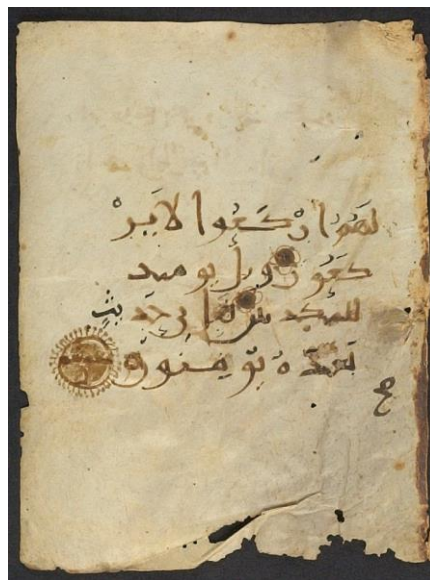 لهم اركعوا لا ير
كعون ويل يومئذ
للمكذبين فبأي حديث
بعده يؤمنون